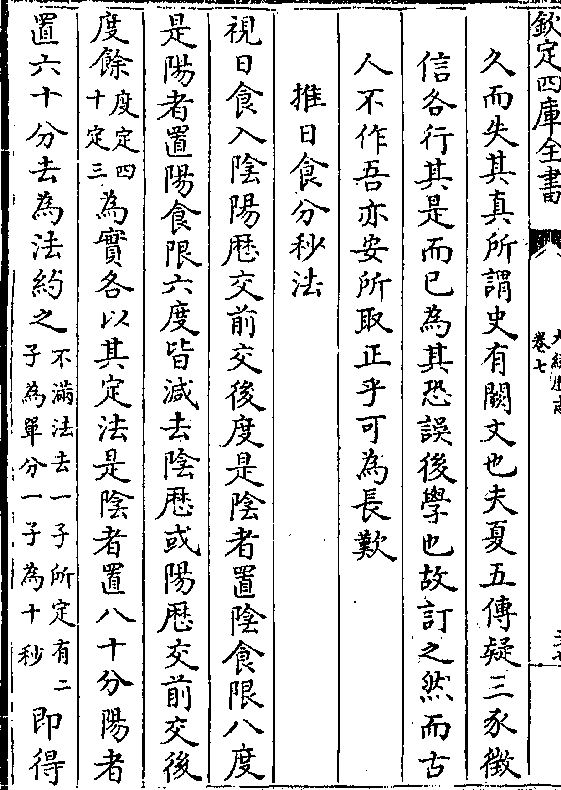 欽定四庫全書
卷七
久而失其真所謂史有闕文也夫夏五傳疑三豕徵
信各行其是而已為其恐誤後學也故訂之然而古
人不作吾亦安所取正乎可為長歎
推日食分秒法
視日食入陰陽厯交前交後度是陰者置陰食限八度
是陽者置陽食限六度皆減去陰厯或陽厯交前交後
度餘度定四十定三為實各以其定法是陰者置八十分陽者
置六十分去為法約之不滿法去一子所定有二子為單分一子為十秒即得